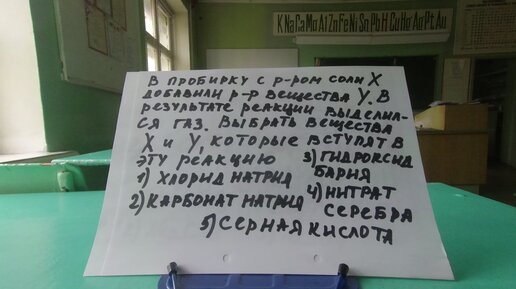 K Na Ca Mg Al Zn Fe Ni Sn Pb H Cu Hg Ag Pt Au
В ПРОБИРКУ С Р-РОМ СОЛИ X
ДОБАВИЛИ Р-Р ВЕЩЕСТВА Y. В
РЕЗУЛЬТАТЕ РЕАКЦИИ ВЫДЕЛИЛ-
СЯ ГАЗ. ВЫБРАТЬ ВЕЩЕСТВА
X И Y, КОТОРЫЕ ВСТУПЯТ В
ЭТУ РЕАКЦИЮ
1) ХЛОРИД НАТРИЯ
2) КАРБОНАТ НАТРИЯ
3) ГИДРОКСИД
БАРИЯ
4) НИТРАТ
СЕРЕБРА
5) СЕРНАЯ КИСЛОТА